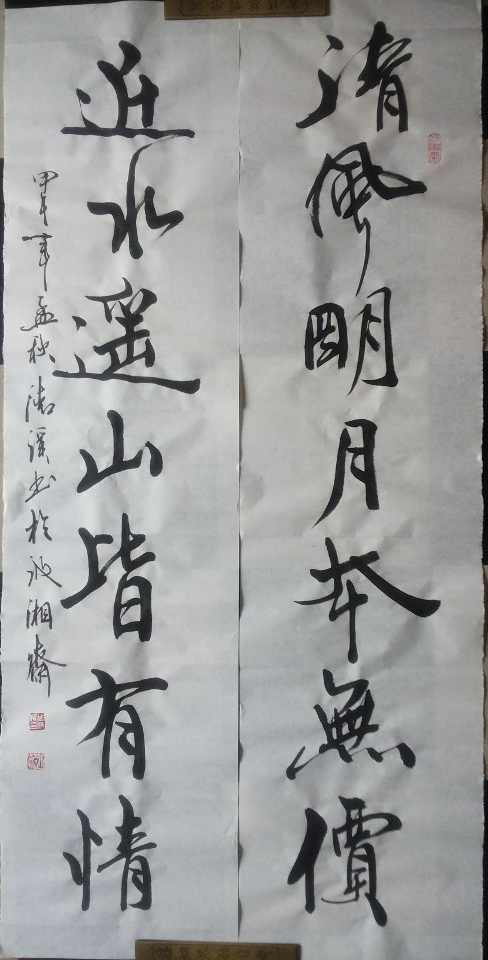 清風明月本無價
近水遥山皆有情
甲午年孟秋濤溪书於湘齋